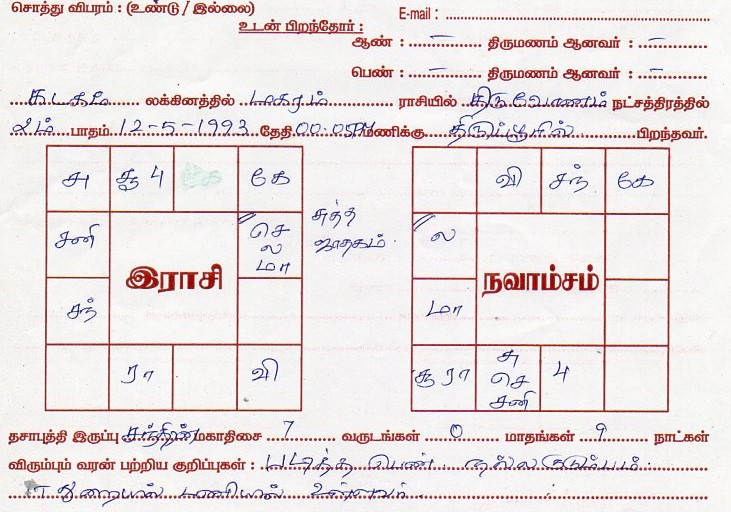 சொத்து விபரம் : (உண்டு / இல்லை)
E-mail :
உடன் பிறந்தோர் :
ஆண் : – திருமணம் ஆனவர் : –
பெண் : – திருமணம் ஆனவர் : –
கடகம் லக்கினத்தில் மகரம் ராசியில் திருவோணம் நட்சத்திரத்தில்
2ம் பாதம் 12-5-1993 தேதி 00.05 மணிக்கு திருப்பூரில் பிறந்தவர்.
சு சூ 4 கே
சனி செ ல மா
சுத்த ஜாதகம்
இராசி
சந்
ரா வி
வி சந் கே
ல
நவாம்சம்
மா
சூ ரா சு செ சனி 4
தசாபுத்தி இருப்பு சந்திரன் மகாதிசை 7 வருடங்கள் 0 மாதங்கள் 9 நாட்கள்
விரும்பும் வரன் பற்றிய குறிப்புகள் : படித்த பெண் நல்ல குடும்பம்
துறையில் பணியில் உள்ளவர்